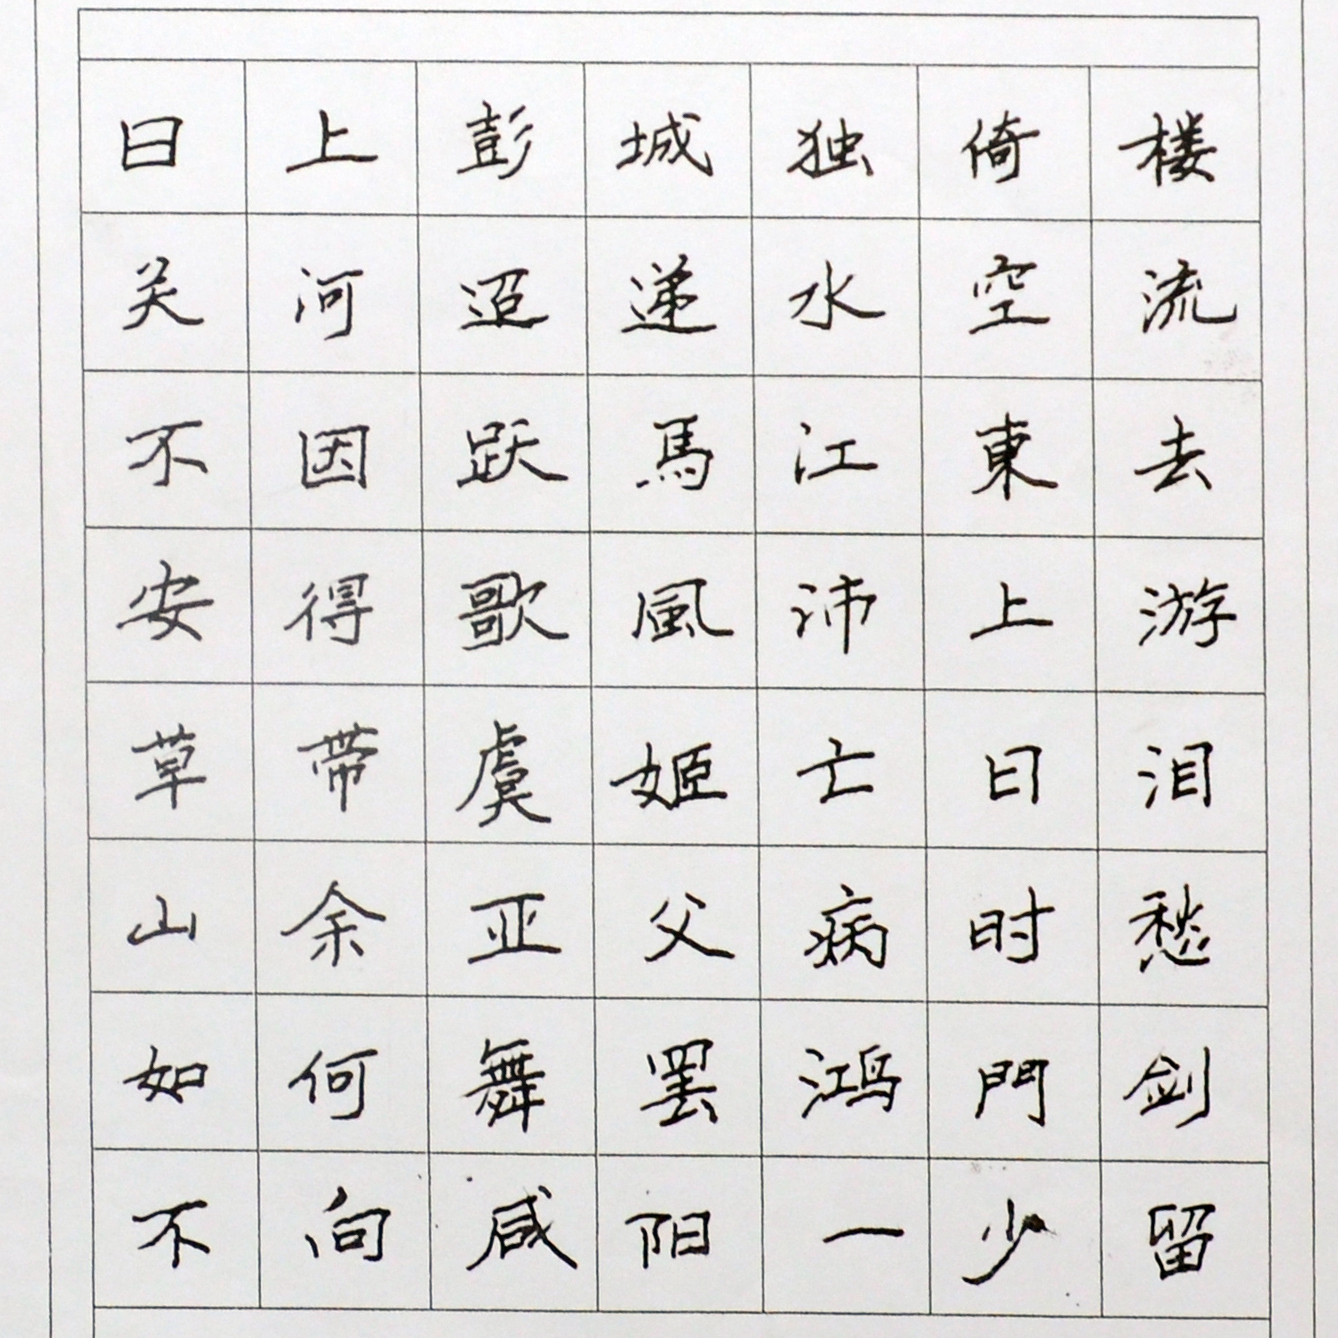 日上彭城独倚楼
关河迢递水空流
不因跃馬江東去
安得歌風沛上游
草带虞姬亡日泪
山余亚父病时愁
如何舞罢鸿門剑
不向咸阳一少留